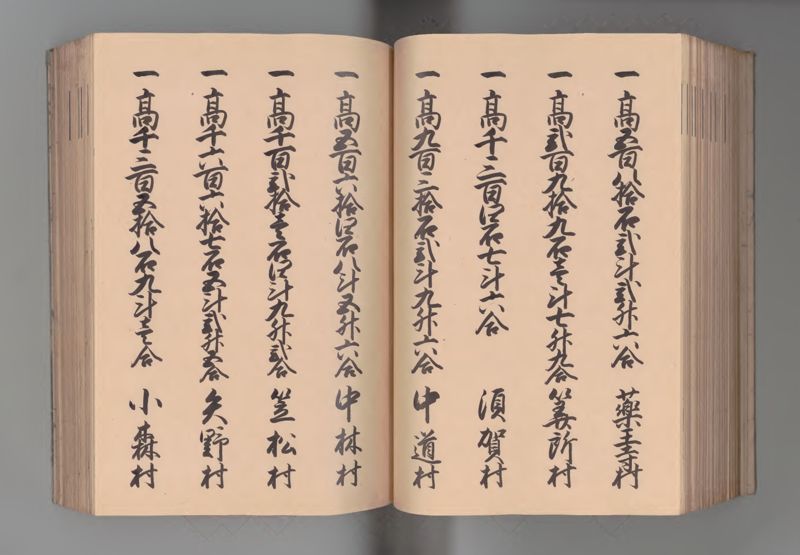 一高五百八拾石弐斗弐升六合 薬王寺村
一高弐百九拾九石壱斗七升九合 箕所村
一高千三百四石七斗六合 須賀村
一高九百三拾石弐斗九升六合 中道村
一高五百六拾四石八斗五升六合 中林村
一高千百弐拾壱石四斗九升弐合 笠松村
一高千六百六拾七石五斗弐升五合 久野村
一高千三百五拾八石九斗壱合 小森村